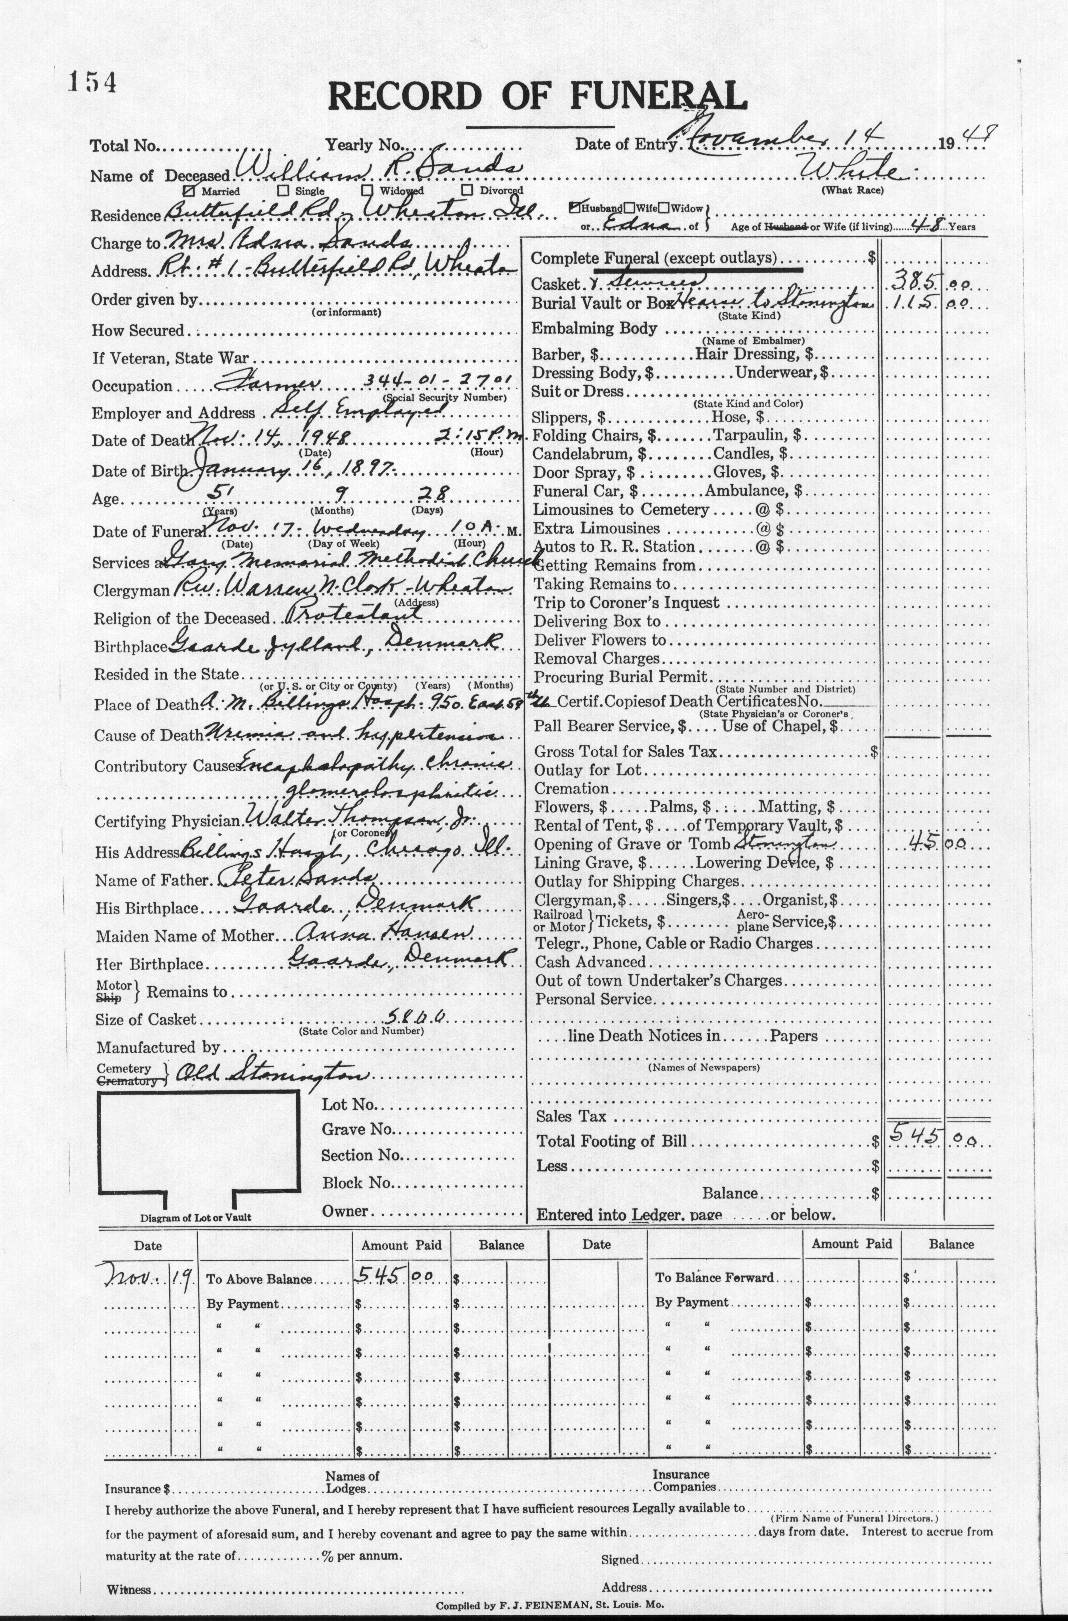 154
RECORD OF FUNERAL
Total No. Yearly No. Date of Entry November 14 1948
Name of Deceased William R. Sands White
Married Single Widowed Divorced (What Race)
Residence Butterfield Rd., Wheaton Ill. Husband Wife Widow
or Edna of Age of Husband or Wife (if living) 48 Years
Charge to Mrs Edna Sands
Address Rt. #1 - Butterfield Rd, Wheaton
Order given by
(or informant)
How Secured
If Veteran, State War
Occupation Farmer 344-01-2701
(Social Security Number)
Employer and Address Self Employed
Date of Death Nov. 14, 1948 2:15 P.M.
(Date) (Hour)
Date of Birth January 16, 1897
Age 51 9 28
(Years) (Months) (Days)
Date of Funeral Nov. 17 - Wednesday 10 A. M.
(Date) (Day of Week) (Hour)
Services at Gary Memorial Methodist Church
Clergyman Rev. Warren N. Clark - Wheaton
(Address)
Religion of the Deceased Protestant
Birthplace Gaarde Jylland, Denmark
Resided in the State
(or U. S. or City or County) (Years) (Months)
Place of Death A. M. Billings Hosph. 950 East 59th
Cause of Death Uremia and hypertension
Contributory Causes Encephalopathy chronic
glomerulosphritic
Certifying Physician Walter Thompson, Jr.
(or Coroner)
His Address Billings Hosph, Chicago Ill.
Name of Father Peter Sands
His Birthplace Gaarde, Denmark
Maiden Name of Mother Anna Hansen
Her Birthplace Gaarde, Denmark
Motor
Ship } Remains to
Size of Casket 5800
(State Color and Number)
Manufactured by
Cemetery
Crematory } Old Stonington
Lot No.
Grave No.
Section No.
Block No.
Owner
Diagram of Lot or Vault
Complete Funeral (except outlays) $
Casket & Services 385 00
Burial Vault or Box Hearse to Stonington 115 00
(State Kind)
Embalming Body
(Name of Embalmer)
Barber, $ Hair Dressing, $
Dressing Body, $ Underwear, $
Suit or Dress
(State Kind and Color)
Slippers, $ Hose, $
Folding Chairs, $ Tarpaulin, $
Candelabrum, $ Candles, $
Door Spray, $ Gloves, $
Funeral Car, $ Ambulance, $
Limousines to Cemetery @ $
Extra Limousines @ $
Autos to R. R. Station @ $
Getting Remains from
Taking Remains to
Trip to Coroner's Inquest
Delivering Box to
Deliver Flowers to
Removal Charges
Procuring Burial Permit
(State Number and District)
Certif. Copies of Death Certificates No.
(State Physician's or Coroner's
Pall Bearer Service, $ Use of Chapel, $
Gross Total for Sales Tax $
Outlay for Lot
Cremation
Flowers, $ Palms, $ Matting, $
Rental of Tent, $ of Temporary Vault, $
Opening of Grave or Tomb Stonington 45 00
Lining Grave, $ Lowering Device, $
Outlay for Shipping Charges
Clergyman, $ Singers, $ Organist, $
Railroad or Motor } Tickets, $ Aeroplane Service, $
Telegr., Phone, Cable or Radio Charges
Cash Advanced
Out of town Undertaker's Charges
Personal Service
line Death Notices in Papers
(Names of Newspapers)
Sales Tax
Total Footing of Bill $ 545 00
Less $
Balance $
Entered into Ledger, page or below.
Date Amount Paid Balance Date Amount Paid Balance
Nov. 19 To Above Balance 545 00 $ To Balance Forward $
By Payment $ $ By Payment $ $
" " $ $ " " $ $
" " $ $ " " $ $
" " $ $ " " $ $
" " $ $ " " $ $
" " $ $ " " $ $
" " $ $ " " $ $
Insurance $ Names of Lodges Insurance Companies
I hereby authorize the above Funeral, and I hereby represent that I have sufficient resources Legally available to
(Firm Name of Funeral Directors.)
for the payment of aforesaid sum, and I hereby covenant and agree to pay the same within days from date. Interest to accrue from
maturity at the rate of % per annum.
Signed
Witness Address
Compiled by F. J. FEINEMAN, St. Louis. Mo.